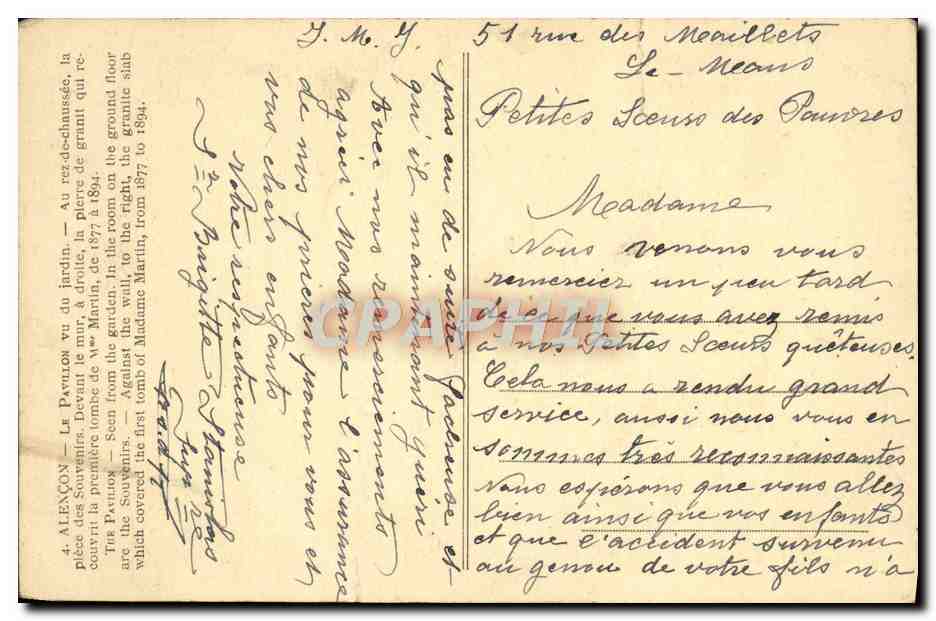 51 rue des Maillets
Le-Mans
Petites Sœurs des Pauvres
Madame
Nous venons vous
remercier un peu tard
de ce que vous avez remis
à nos Petites Sœurs quêteuses.
Cela nous a rendu grand
service, aussi nous vous en
sommes très reconnaissantes
Nous espérons que vous allez
bien ainsi que vos enfants
et que l'accident survenu
au genou de votre fils n'a
J. M. J.
pas eu de suite facheuse et
qu'il maintenant guéri
Avec nos remerciements
agréer Madame l'assurance
de nos prières pour vous et
vos chers enfants
Notre respectueuse
Sr Brigitte Stanislas
4. ALENÇON. — LE PAVILLON vu du jardin. — Au rez-de-chaussée, la
pièce des Souvenirs. Devant le mur, à droite, la pierre de granit qui re-
couvrit la première tombe de Mme Martin, de 1877 à 1894.
THE PAVILION — Seen from the garden. In the room on the ground floor
are the Souvenirs. — Against the wall, to the right, the granite slab
which covered the first tomb of Madame Martin, from 1877 to 1894.
CPAPHIL